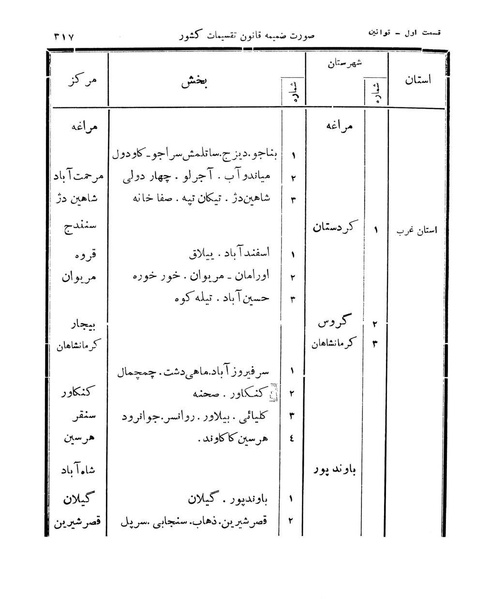 قسمت اول - قوانین صورت ضمیمه قانون تقسیمات کشور ۳۱۷
استان شهرستان شماره بخش شماره مرکز
مراغه مراغه
۱ بناجو . دیزج . ساتلمش سراجو - کاودول
۲ میاندوآب . آجرلو . چهار دولی مرحمت آباد
۳ شاهین دژ . تیکان تپه . صفا خانه شاهین دژ
استان غرب ۱ کردستان سنندج
۱ اسفندآباد . ییلاق قروه
۲ اورامان - مریوان . خور خوره مریوان
۳ حسین آباد . تیله کوه
۲ گروس بیجار
۳ کرمانشاهان کرمانشاهان
۱ سرفیروزآباد . ماهی دشت . چمچمال
۲ کنگاور . صحنه کنگاور
۳ کلیائی . بیلاور . روانسر . جوانرود سنقر
٤ هرسین کاکاوند . هرسین
باوند پور شاه آباد
۱ باوندپور . گیلان گیلان
۲ قصرشیرین . ذهاب . سنجابی . سرپل قصرشیرین